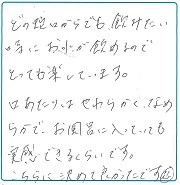 どの蛇口からでも、飲みたい
時にお水が飲めるので
とっても楽しています。
口あたりはやわらかく、なめ
らかで、お風呂に入っていても
実感できるくらいです。
こちらに決めて良かったです